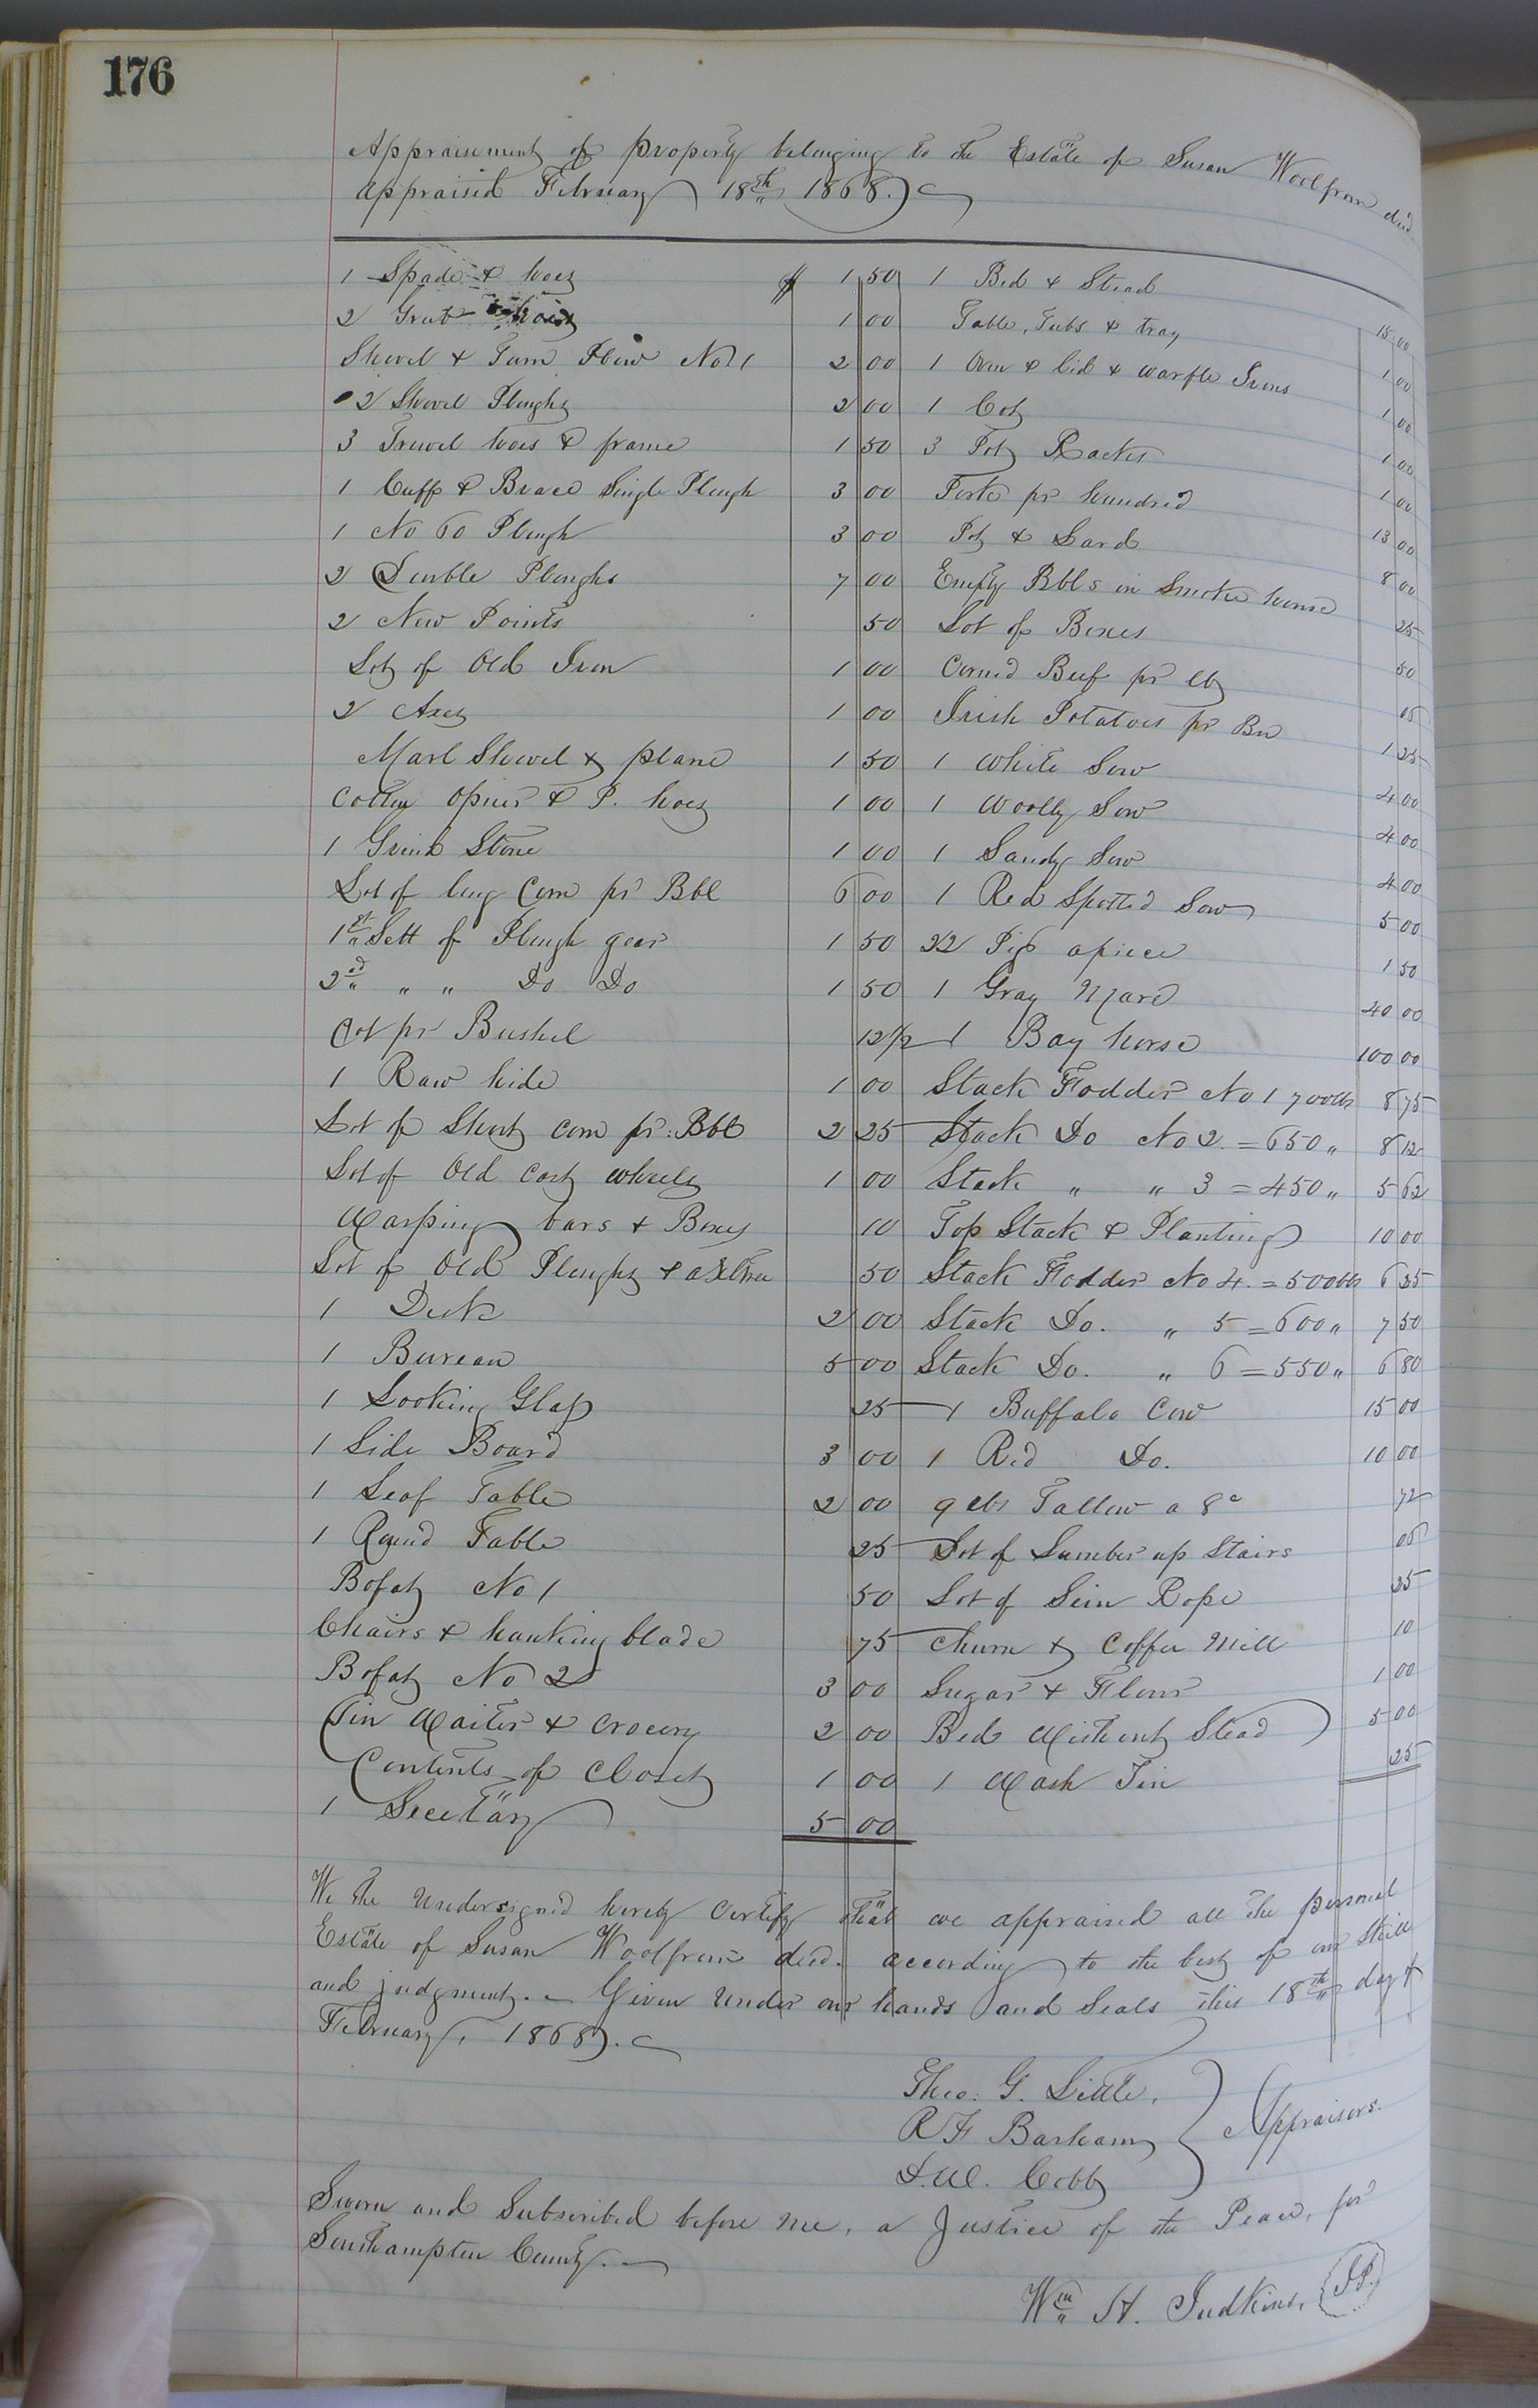 176
Appraisement of property belonging to the Estate of Susan Woolfrom decd
appraised February 18th 1868.
1 Spade & hoes $ 1 50
2 Grub hoes 1 00
Shovel & Turn Plow No 1 2 00
2 Shovel Ploughs 2 00
3 Trowel hoes & frame 1 50
1 Cuff & Brace Single Plough 3 00
1 No 60 Plough 3 00
2 Double Ploughs 7 00
2 New Points 50
Lot of Old Iron 1 00
2 Axes 1 00
Marl Shovel & plane 1 50
Cotton opener & P. hoes 1 00
1 Grind Stone 1 00
Lot of long Corn pr Bbl 6 00
1st Sett of Plough gear 1 50
2nd " " Do Do 1 50
Oot pr Bushel 12 1/2
1 Raw hide 1 00
Lot of Short corn pr. Bbl 2 25
Lot of Old Cart wheels 1 00
Warping bars & Boxes 10
Lot of Old Ploughs & axeltree 50
1 Desk 2 00
1 Bureau 5 00
1 Looking Glass 25
1 Side Board 3 00
1 Leaf Table 2 00
1 Round Table 25
Bofat No 1 50
Chairs & hanking blade 75
Bofat No 2 3 00
Tin Waiter & Crocery 2 00
Contents of Closet 1 00
1 Secetary 5 00
1 Bed & Stead 15 00
Table, Tubs & tray 1 00
1 Oven & lid & warfle Irons 1 00
1 Cot 1 00
3 Pot Racks 1 00
Pork pr hundred 13 00
Pot & Lard 8 00
Empty Bbls in Smoke house 25
Lot of Boxes 50
Corned Beef pr lb 05
Irish Potatoes pr Bu 1 25
1 White Sow 4 00
1 Woolly Sow 4 00
1 Sandy Sow 4 00
1 Red Spotted Sow 5 00
22 Pigs apiece 1 50
1 Gray Mare 40 00
1 Bay horse 100 00
Stack Fodder No 1 700lbs 8 75
Stack Do No 2. = 650 " 8 12
Stack " " 3 = 450 " 5 62
Top Stack & Planting 10 00
Stack Fodder No 4. = 500lbs 6 25
Stack Do. " 5 = 600 " 7 50
Stack Do. " 6 = 550 " 6 80
1 Buffalo Cow 15 00
1 Red Do. 10 00
9 lbs Tallow a 8c 72
Lot of Lumber up Stairs 05
Lot of Sein Rope 25
Churn & Coffee Mill 10
Sugar & Flour 1 00
Bed Without Stead 5 00
1 Wash Tin 25
We the Undersigned hereby Certify that we appraised all the personal
Estate of Susan Woolfrom decd. according to the best of our Skill
and judgment. Given under our hands and Seals this 18th day of
February, 1868.
Theo. G. Little,
R F Barham
D. W. Cobb
Appraisers.
Sworn and Subscribed before me, a Justice of the Peace, for
Southampton County.
Wm H. Judkins, J.P.